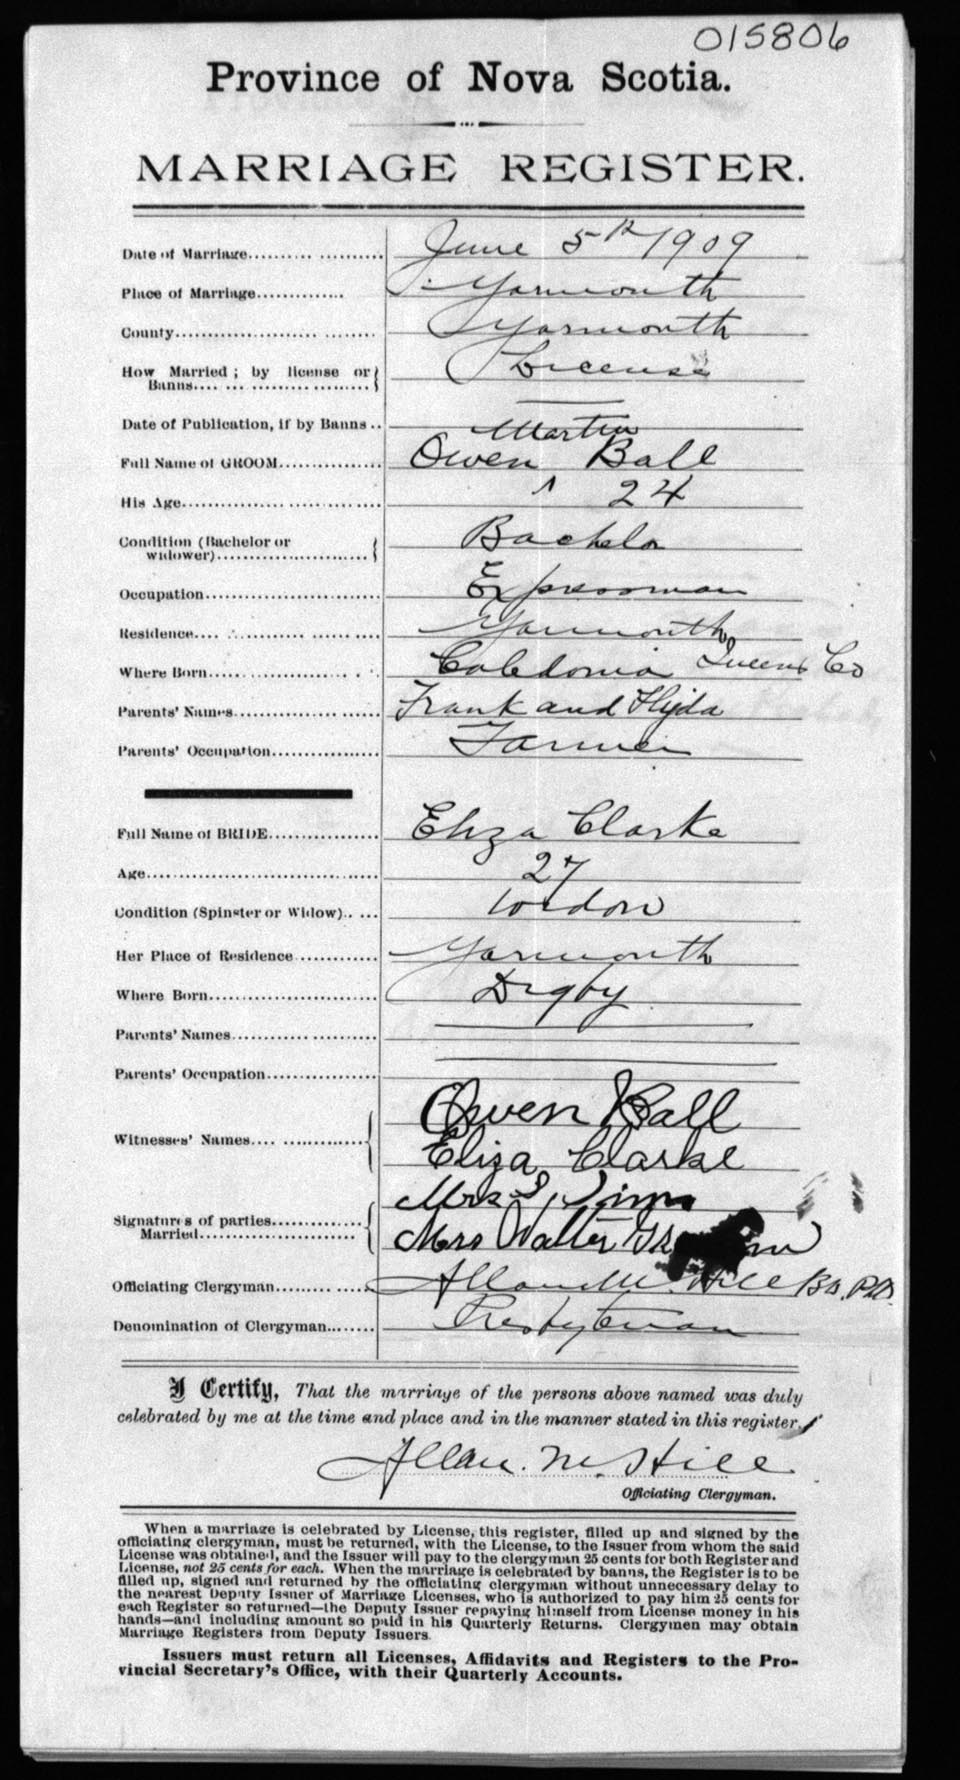 015806
Province of Nova Scotia.
MARRIAGE REGISTER.
Date of Marriage.......... June 5th 1909
Place of Marriage.......... Yarmouth
County.......... Yarmouth
How Married; by license or
Banns.......... License
Date of Publication, if by Banns ..
Martin
Full Name of GROOM.......... Owen ^ Ball
His Age.......... 24
Condition (Bachelor or
widower).......... Bachelor
Occupation.......... Expressman
Residence.......... Yarmouth
Where Born.......... Caledonia Queens Co
Parents' Names.......... Frank and
Parents' Occupation.......... Farmer
Full Name of BRIDE.......... Eliza Clarke
Age.......... 27
Condition (Spinster or Widow).. .... Widow
Her Place of Residence .......... Yarmouth
Where Born.......... Digby
Parents' Names..........
Parents' Occupation..........
Owen Ball
Witnesses' Names.......... Eliza Clarke
Mrs
Signatures of parties..........
Married.......... Mrs Walter
Officiating Clergyman.......... Allan M. Hill BA. PhD.
Denomination of Clergyman........ Presbyterian
I Certify, That the marriage of the persons above named was duly
celebrated by me at the time and place and in the manner stated in this register.
Allan. M. Hill
Officiating Clergyman.
When a marriage is celebrated by License, this register, filled up and signed by the
officiating clergyman, must be returned, with the License, to the Issuer from whom the said
License was obtained, and the Issuer will pay to the clergyman 25 cents for both Register and
License, not 25 cents for each. When the marriage is celebrated by banns, the Register is to be
filled up, signed and returned by the officiating clergyman without unnecessary delay to
the nearest Deputy Issuer of Marriage Licenses, who is authorized to pay him 25 cents for
each Register so returned—the Deputy Issuer repaying himself from License money in his
hands—and including amount so paid in his Quarterly Returns. Clergymen may obtain
Marriage Registers from Deputy Issuers.
Issuers must return all Licenses, Affidavits and Registers to the Pro-
vincial Secretary's Office, with their Quarterly Accounts.